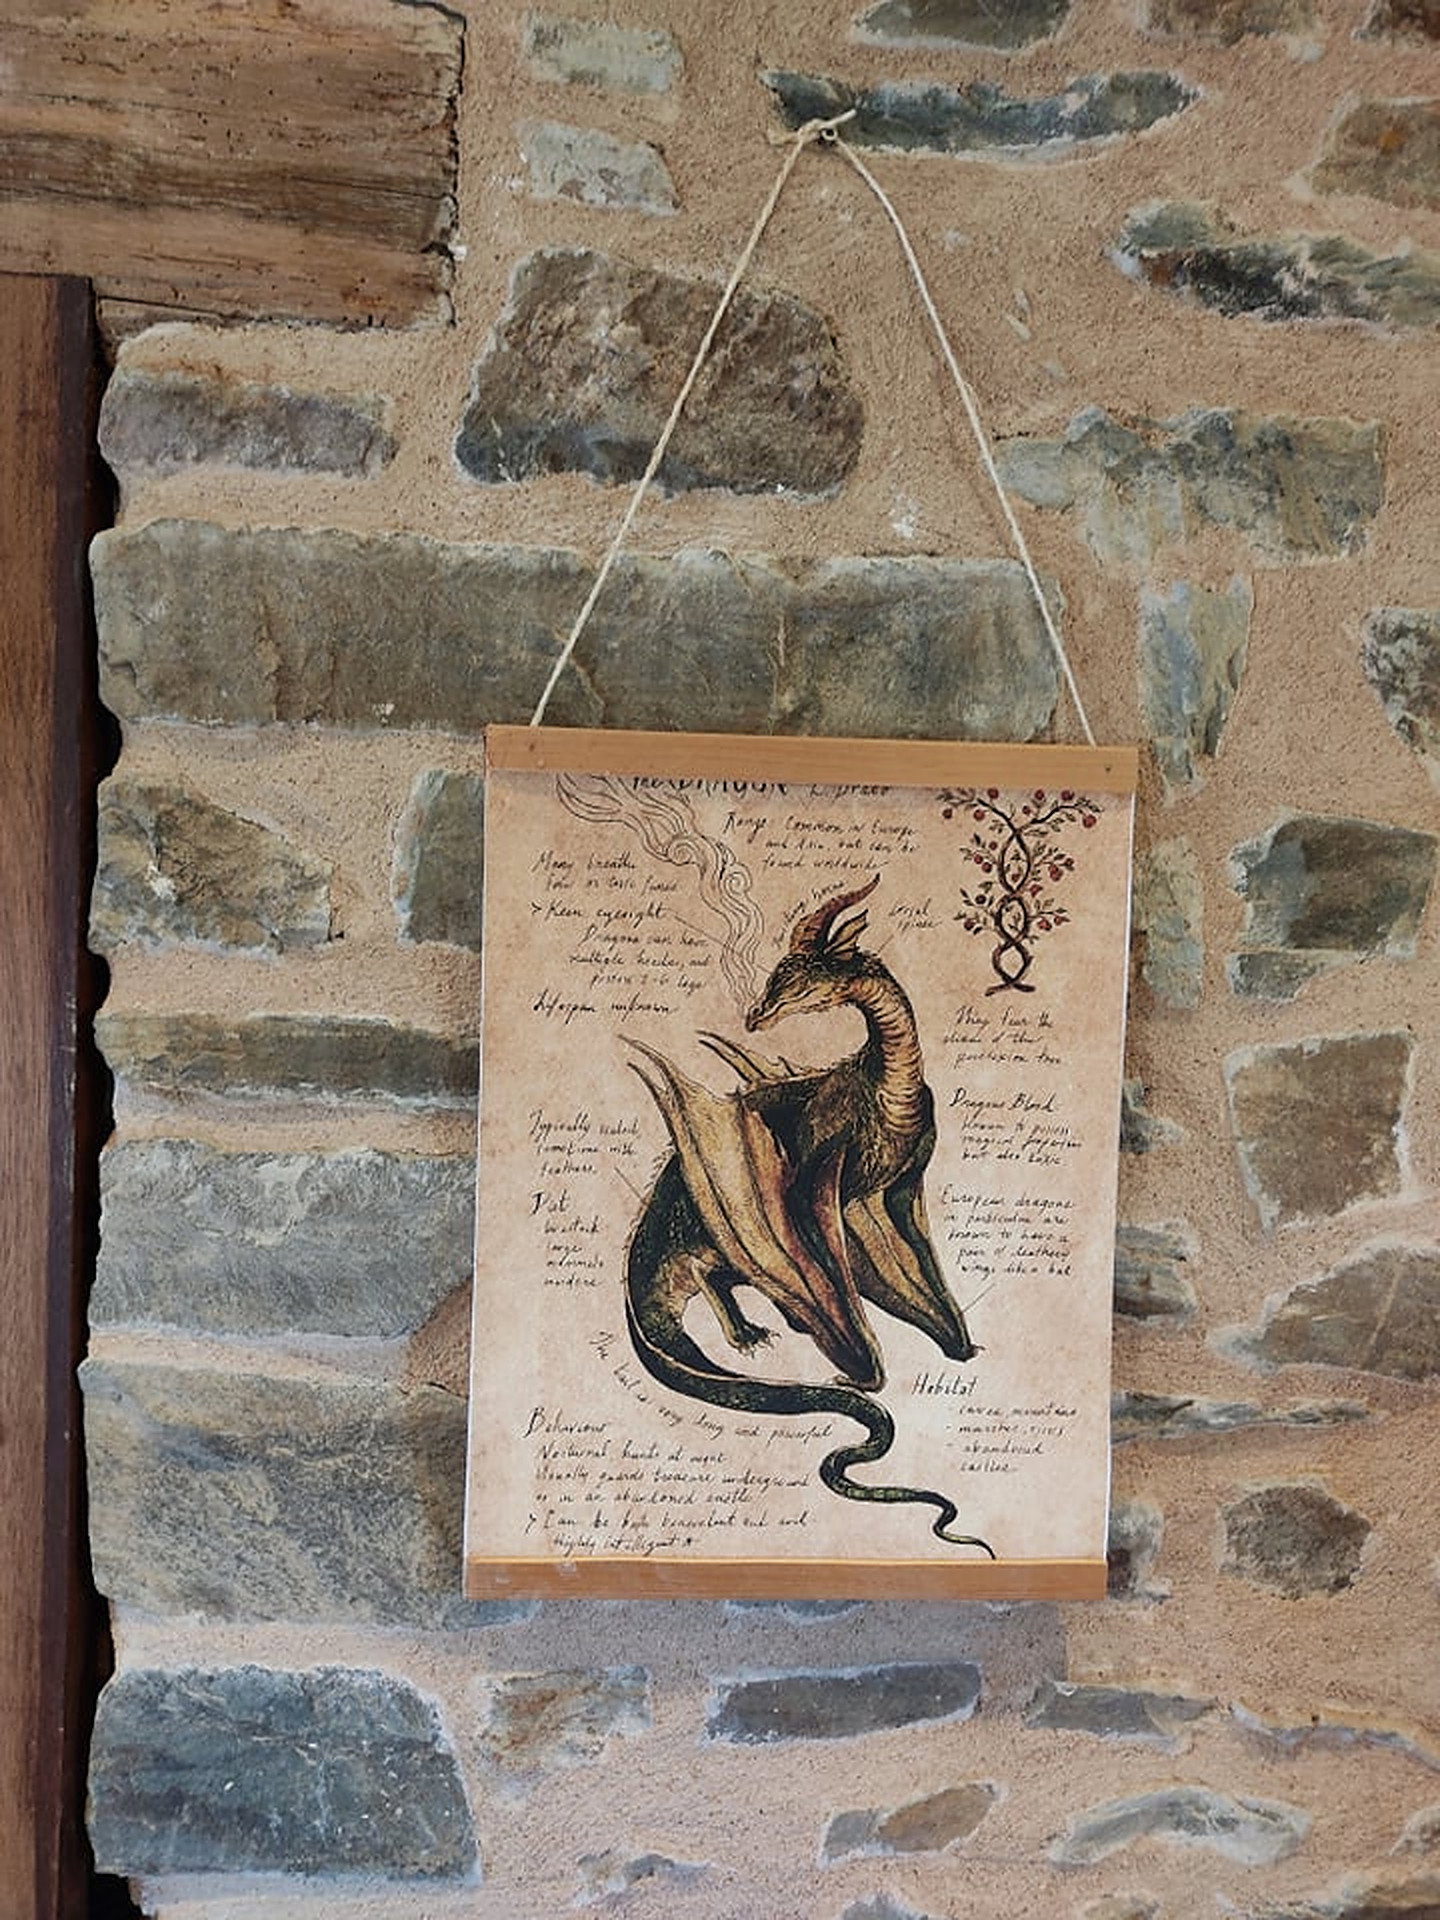 The DRAGON L. Draco
Range: Common in Europe
and Asia, but can be
found worldwide
Many breathe
fire or toxic fumes
> Keen eyesight
Dragons can have
multiple heads, and
possess 2-6 legs
Lifespan unknown
long horns
Dorsal
spines
They fear the
shade of the
peridexion tree
Dragons Blood
known to possess
magical properties
but also toxic
Typically scaled
sometimes with
feathers
European dragons
in particular are
known to have a
pair of leathery
wings like a bat
Diet
large
mammals
The tail is very long and powerful
Habitat
- caves, mountains
- marshes, rivers
- abandoned
castles
Behaviour
Nocturnal, hunts at night
Usually guards treasure underground
or in an abandoned castle
> Can be both benevolent and evil
Highly intelligent